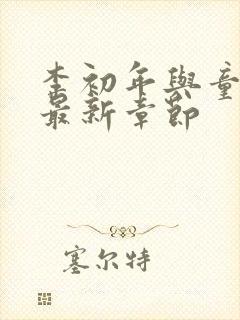 李初年與童
最新章節
塞尔特